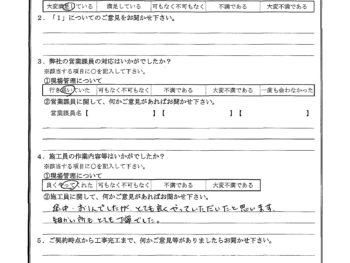 大変満足している 満足している 可もなく不可もなく 不満である 大変不満である
2．「1」についてのご意見をお聞かせ下さい。
3．弊社の営業課員の対応はいかがでしたか？
※該当する項目に○を記入して下さい。
①現場管理について
行き届いていた 可もなく不可もなく 不満である 大変不満である 一度も会わなかった
②営業課員に関して、何かご意見があればお聞かせ下さい。
営業課員名【 】【 】【 】
4．施工員の作業内容等はいかがでしたか？
※該当する項目に○を記入して下さい。
①現場管理について
良くやってくれた 可もなく不可もなく 不満である 大変不満である
②施工員に関して、何かご意見があればお聞かせ下さい。
とても良くやっていただいたと思います。
細かい所も とても丁寧でした。
5．ご契約時点から工事完工まで、何かご意見等がありましたらお聞かせ下さい。